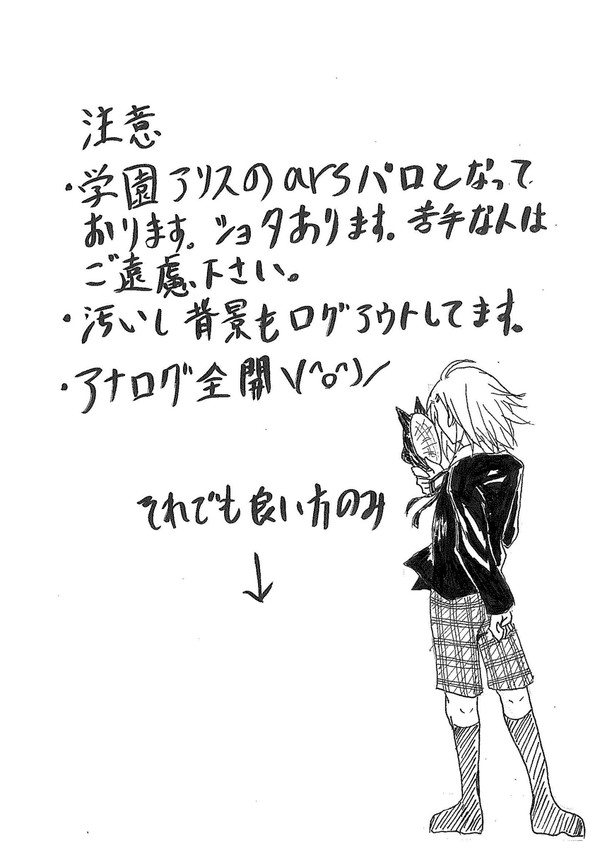 注意
・学園アリスのarsパロとなって
おります。ショタあります。苦手な人は
ご遠慮下さい。
・汚いし背景もログアウトしてます。
・アナログ全開\(^o^)/
それでも良い方のみ
↓